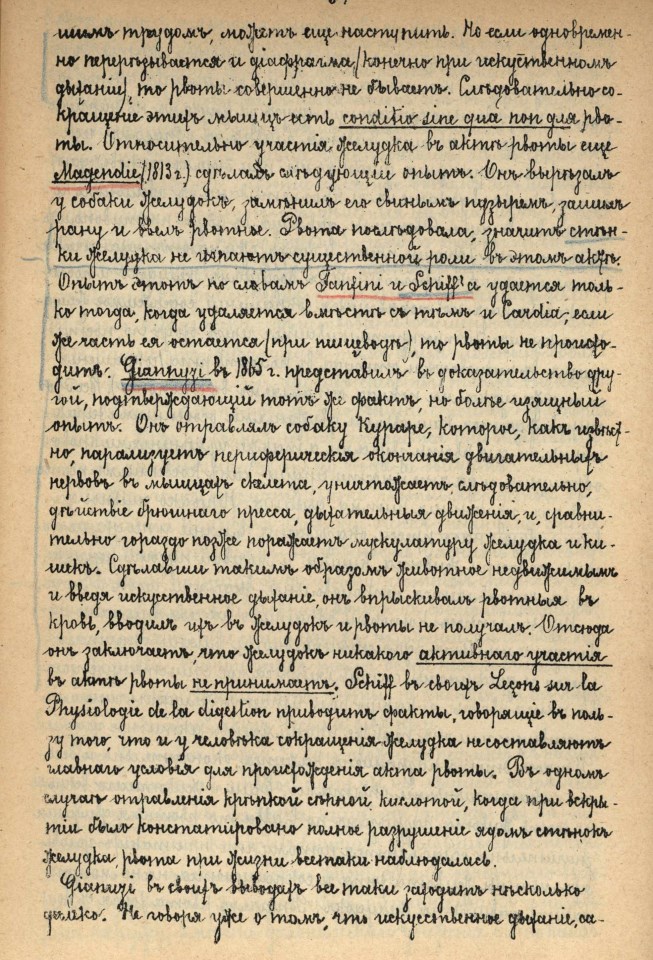 шимъ трудомъ, можетъ еще наступить. Но если одновремен-
но перерѣзывается и діафрагма (конечно при искуственномъ
дыханіи), то рвоты совершенно не бываетъ. Слѣдовательно со-
кращеніе этихъ мышцъ есть conditio sine qua non для рво-
ты. Относительно участія желудка въ актѣ рвоты еще
Magendie (1813 г.) сдѣлалъ слѣдующій опытъ. Онъ вырѣзалъ
у собаки желудокъ, замѣнилъ его свинымъ пузыремъ, зашилъ
рану и ввелъ рвотное. Рвота послѣдовала, значитъ стѣн-
ки желудка не играютъ существенной роли въ этомъ актѣ.
Опытъ этотъ по словамъ Tantini и Schiff'а удается толь-
ко тогда, когда удаляется вмѣстѣ съ тѣмъ и Cardia; если
же часть ея остается (при пищеводѣ), то рвоты не происхо-
дитъ. Gianuzzi въ 1865 г. представилъ въ доказательство дру-
гой, подтверждающій тотъ же фактъ, но болѣе изящный
опытъ. Онъ отравлялъ собаку Кураре, которое, какъ извѣст-
но, парализуетъ периферическія окончанія двигательныхъ
нервовъ въ мышцахъ скелета, уничтожаетъ, слѣдовательно,
дѣйствіе брюшнаго пресса, дыхательныя движенія, и, сравни-
тельно гораздо позже поражаетъ мускулатуру желудка и ки-
шекъ. Сдѣлавши такимъ образомъ животное недвижимымъ
и введя искусственное дыханіе, онъ впрыскивалъ рвотныя въ
кровь, вводилъ ихъ въ желудокъ и рвоты не получалъ. Отсюда
онъ заключаетъ, что желудокъ никакого активнаго участія
въ актѣ рвоты не принимаетъ. Schiff въ своихъ Leçons sur la
Physiologie de la digestion приводитъ факты, говорящіе въ поль-
зу того, что и у человѣка сокращенія желудка не составляютъ
главнаго условія для происхожденія акта рвоты. Въ одномъ
случаѣ отравленія крѣпкой сѣрной кислотой, когда при вскры-
тіи было констатировано полное разрушеніе ядомъ стѣнокъ
желудка рвота при жизни всетаки наблюдалась.
Gianuzi въ своихъ выводахъ все таки заходитъ нѣсколько
далеко. Не говоря уже о томъ, что искусственное дыханіе, са-